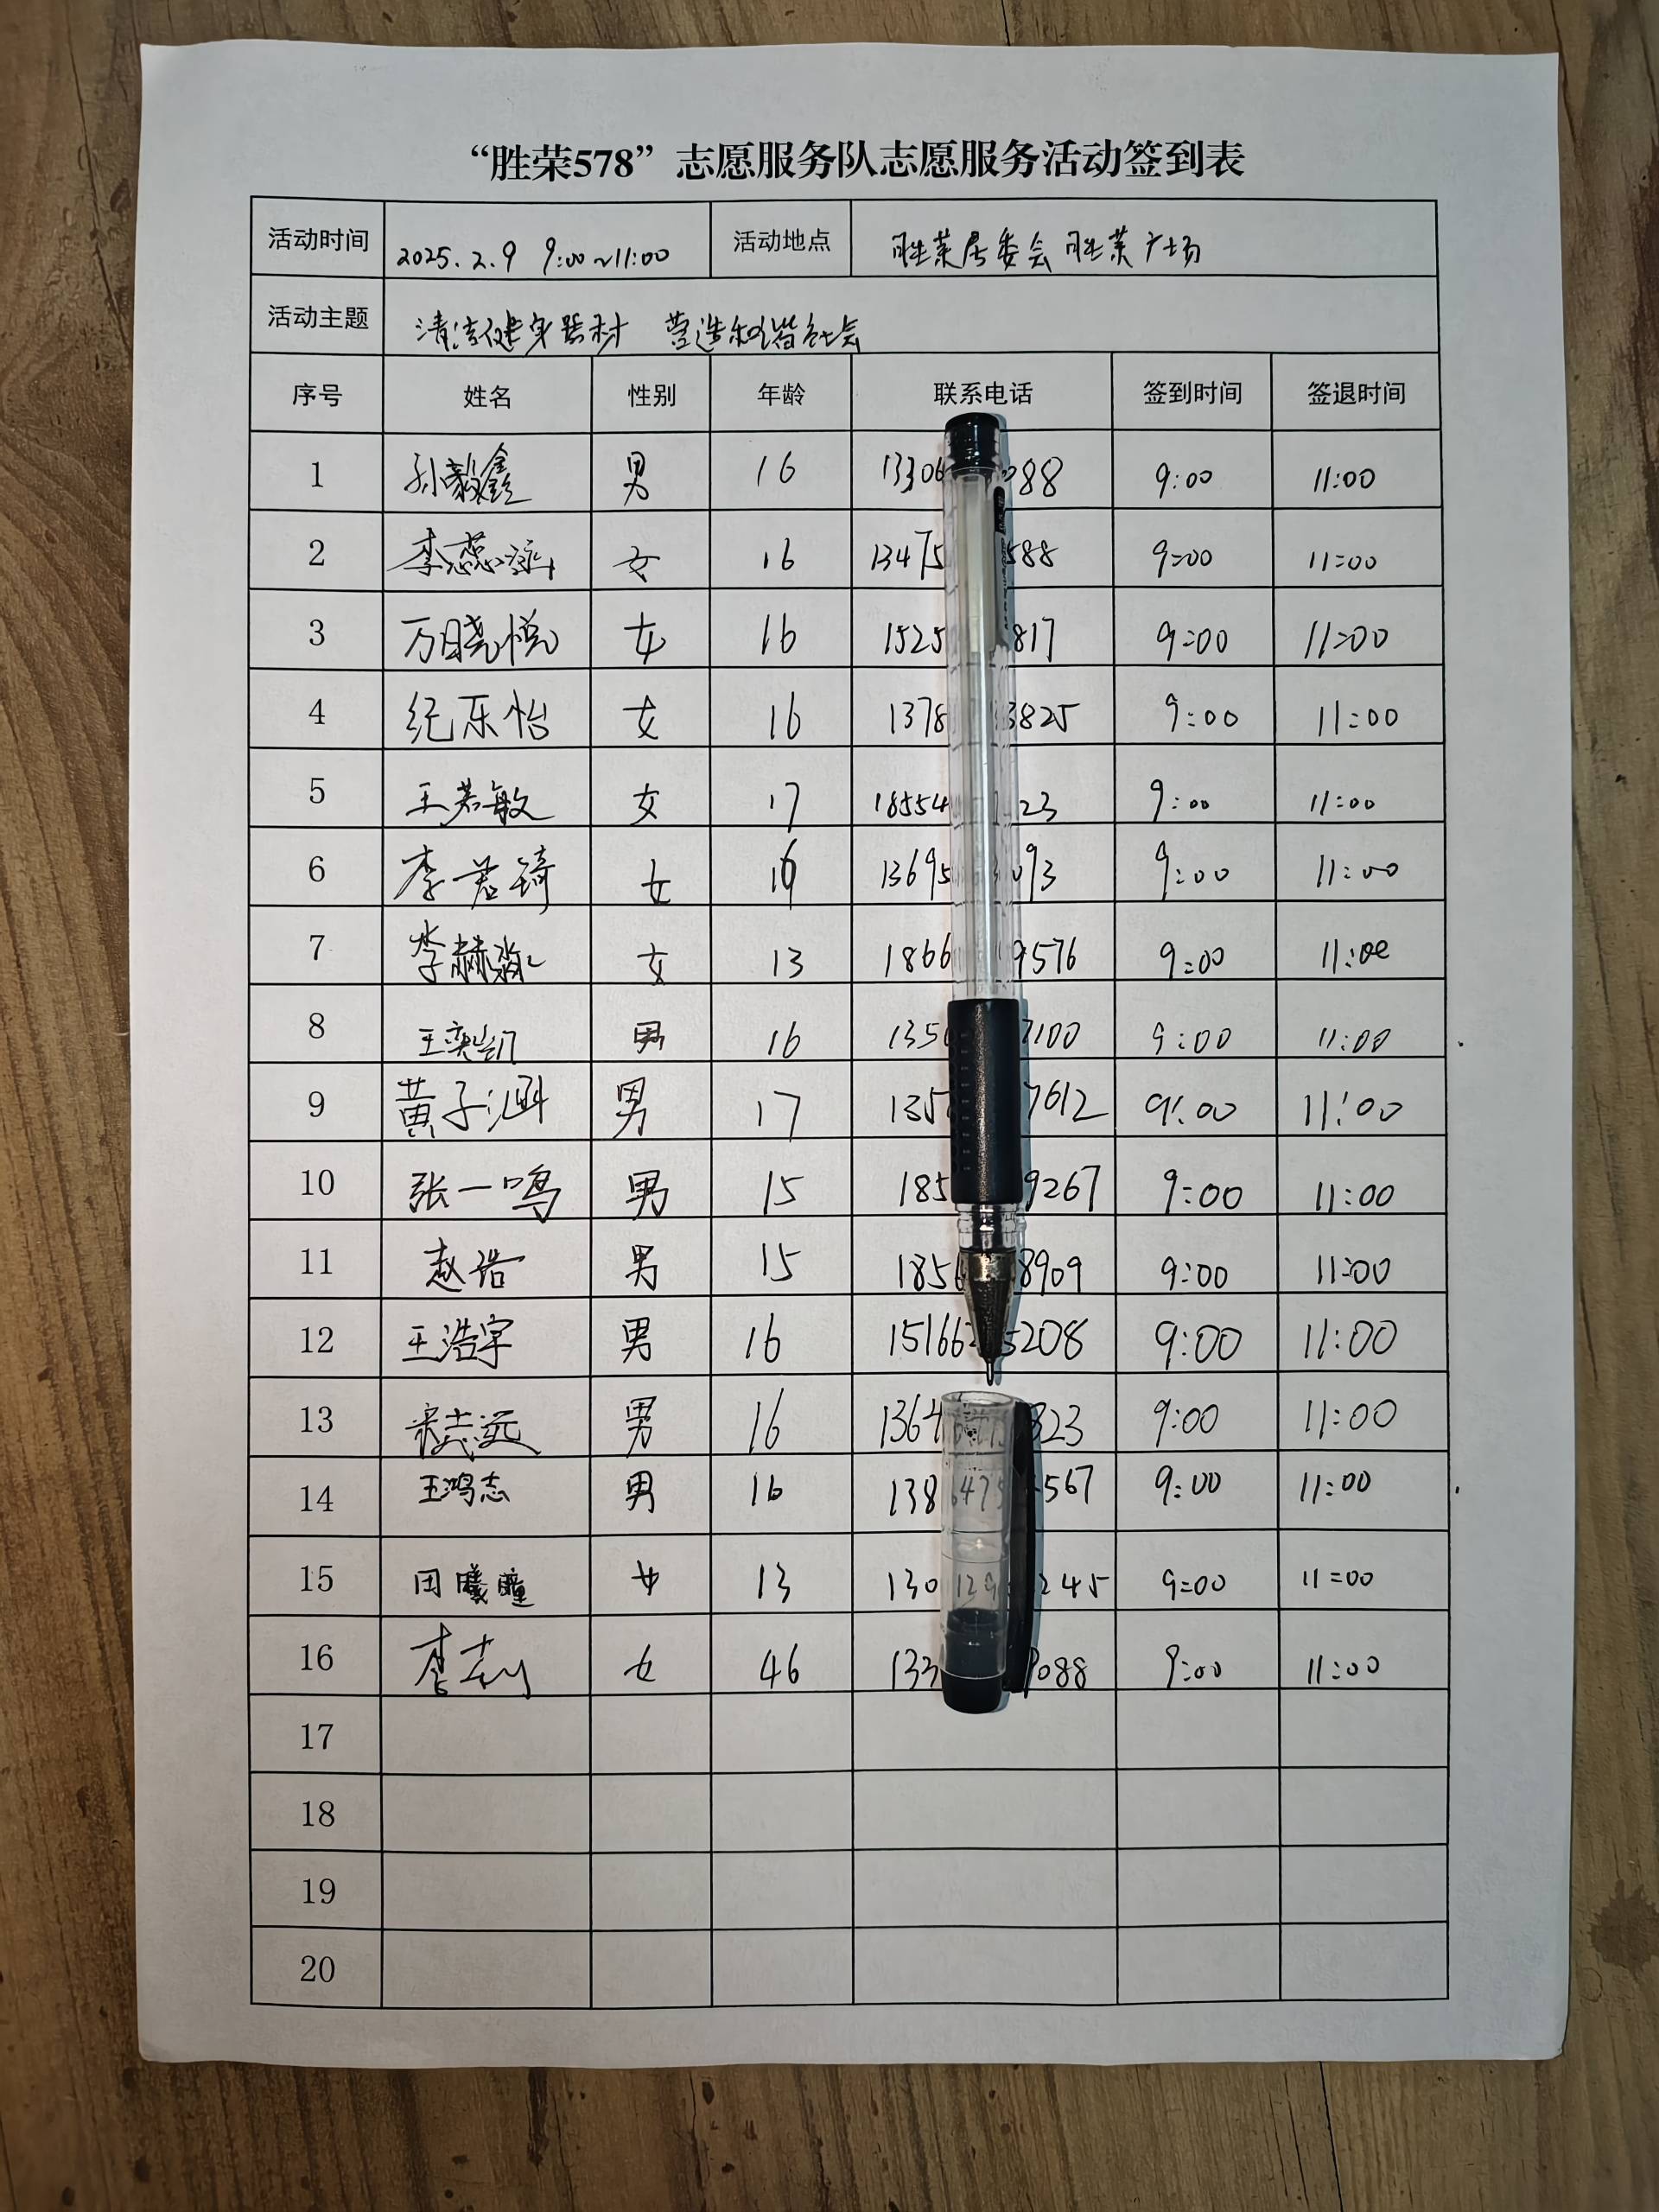 “胜荣578”志愿服务队志愿服务活动签到表
活动时间 2025.2.9 9:00~11:00 活动地点 胜荣居委会 胜荣广场
活动主题 清洁健身器材 营造和谐社会
序号 姓名 性别 年龄 联系电话 签到时间 签退时间
1 孙毅鑫 男 16 13306 088 9:00 11:00
2 女 16 13475 588 9:00 11:00
3 万晓悦 女 16 1525 817 9:00 11:00
4 纪乐怡 女 16 1378 3825 9:00 11:00
5 王若敏 女 17 18554 23 9:00 11:00
6 李若锜 女 16 13695 093 9:00 11:00
7 李赫淼 女 13 1866 9576 9:00 11:00
8 王奕凯 男 16 135 7100 9:00 11:00
9 黄子涵 男 17 135 7612 9:00 11:00
10 张一鸣 男 15 185 9267 9:00 11:00
11 赵浩 男 15 185 8909 9:00 11:00
12 王浩宇 男 16 15166 5208 9:00 11:00
13 宋志远 男 16 1364 823 9:00 11:00
14 王鸿志 男 16 138 6475 567 9:00 11:00
15 田曦瞳 女 13 130 129 245 9:00 11:00
16 女 46 133 9088 9:00 11:00
17
18
19
20